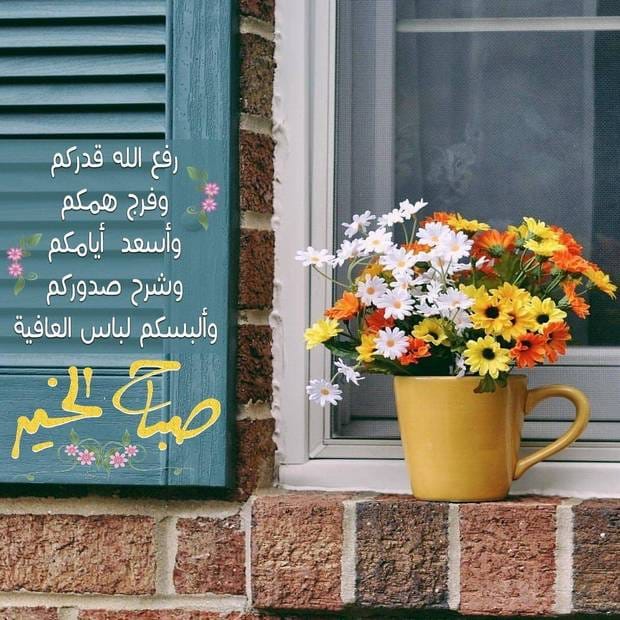 رفع الله قدركم
وفرج همكم
وأسعد أيامكم
وشرح صدوركم
وألبسكم لباس العافية
صباح الخير